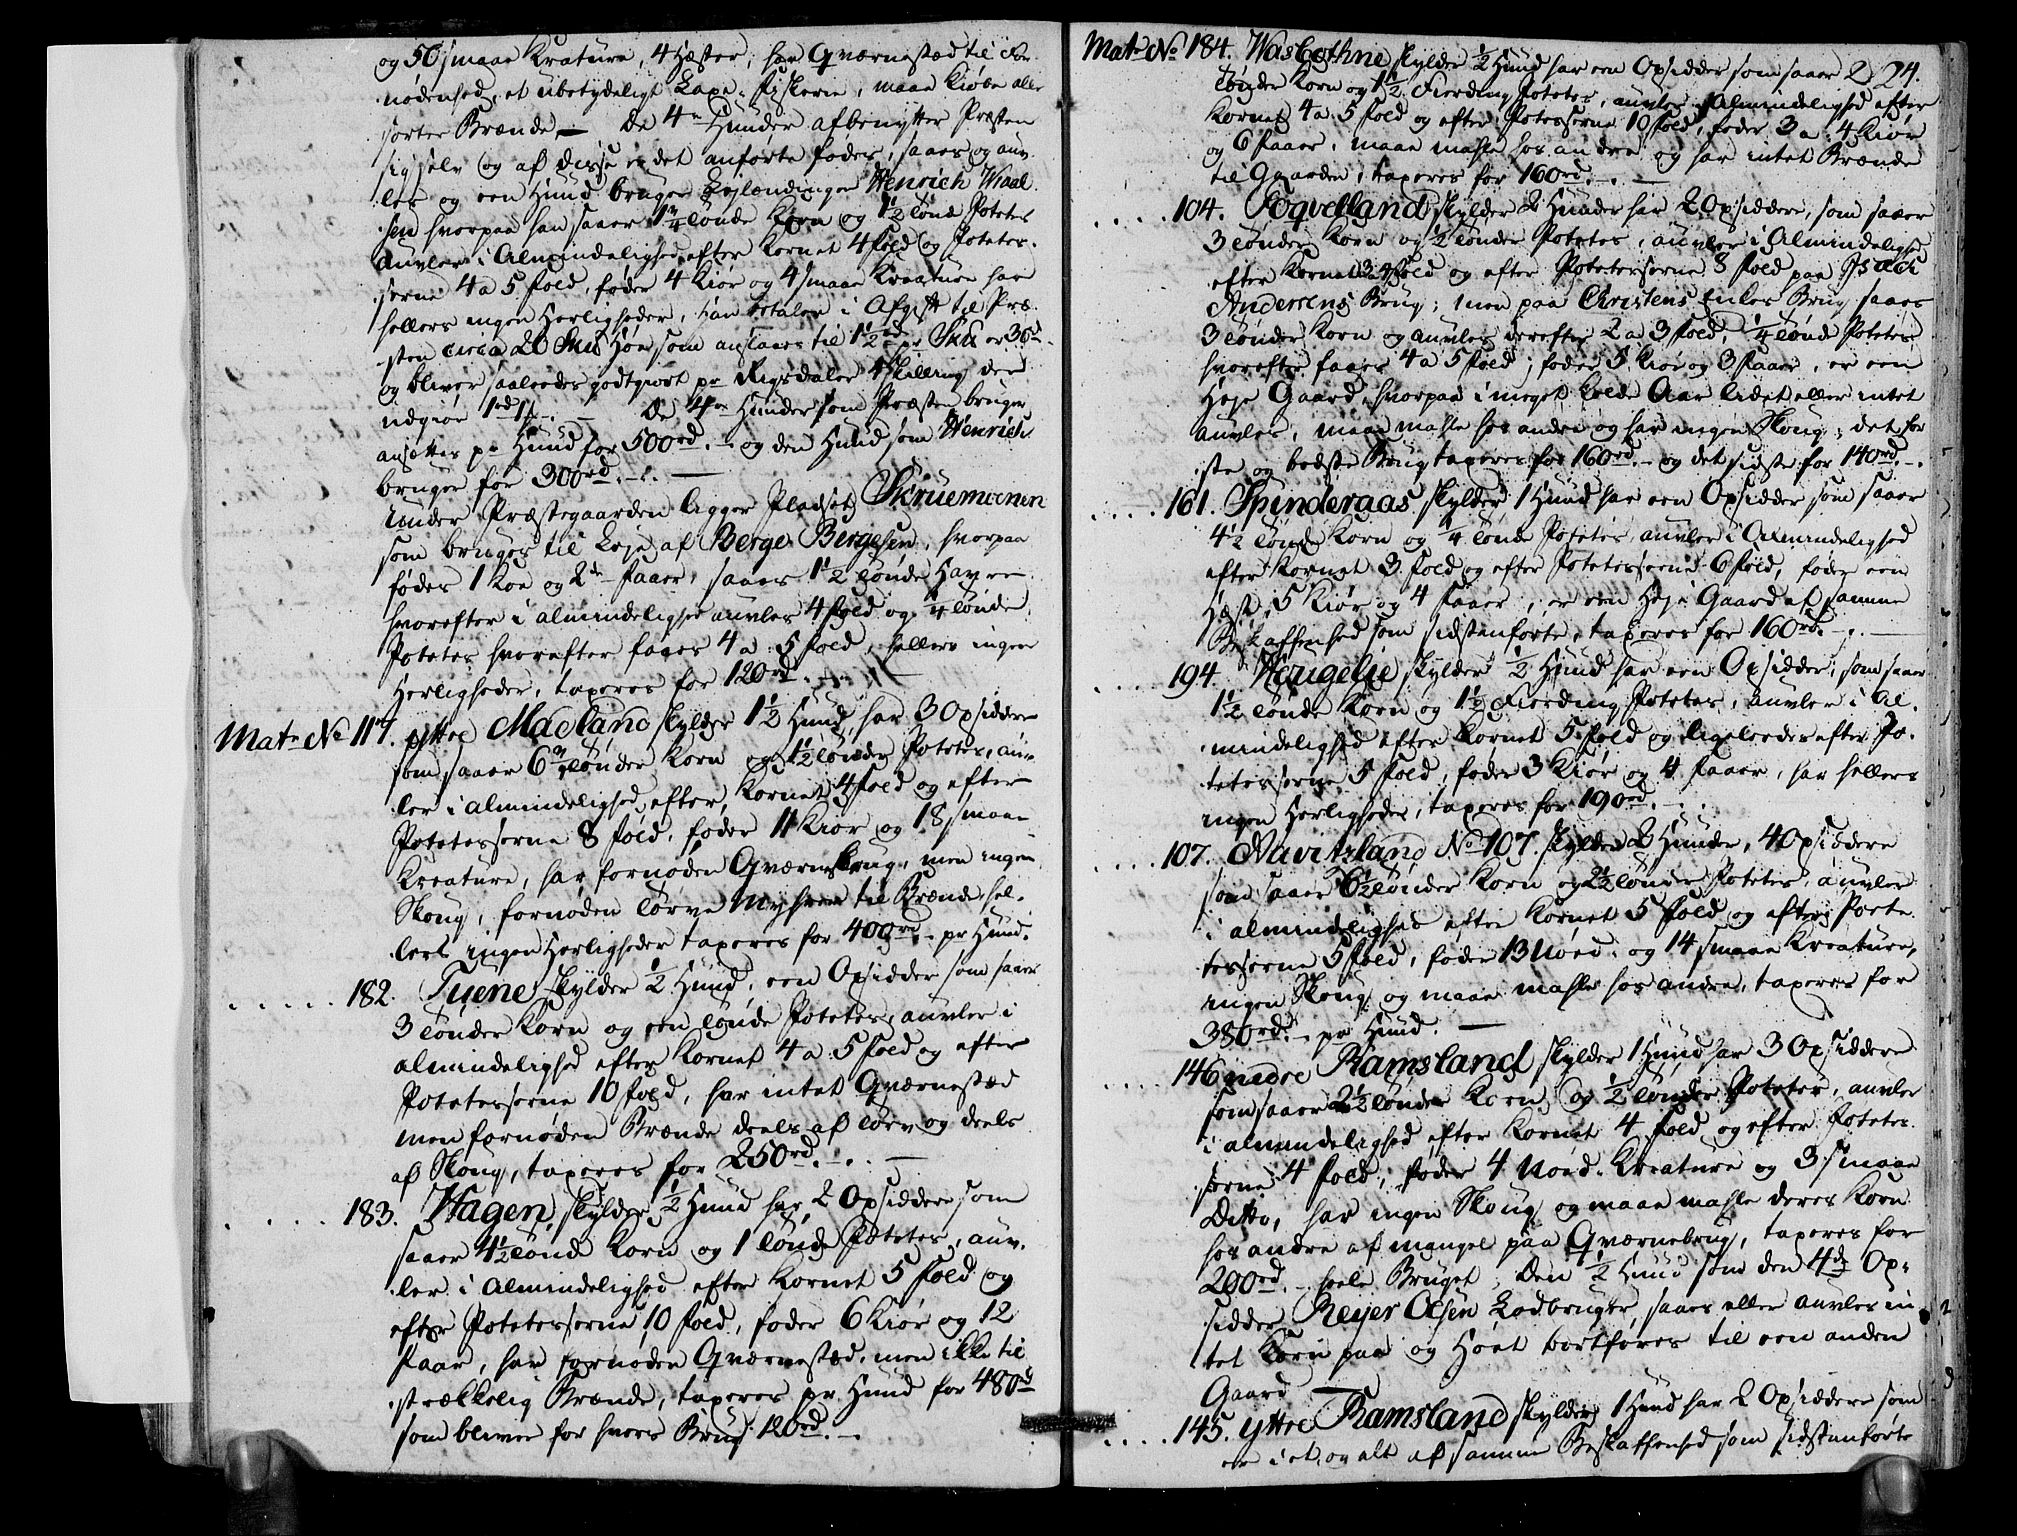 og 50 smaae Kreature, 4 Hæster, har Qværnestæd til For-
nødenhed, et ubetydeligt Laxe-Fiskerie, maae kiøbe alle
sorter Brænde — De 4re Hunder afbenytter Præsten
sig selv og af disse er det anførte fødes, saaes og auv-
les og een Hund bruger Leylændingen Henrich Wiaal-
sen hvorpaa han saaer 1¾ Tønde Korn og 1½ Tønd Potetes
auvler i Almindelighed efter Kornet 4 fold og Potetes-
serne 4 a 5 fold, føder 4 Kiør og 4 smaae Kreature har
hellers ingen Herligheder, han betaler i Afgift til Præ-
sten circa 20 Skis Høe som anslaaes til 1½rd pr Skis er 30rd
og bliver saaledes godtgiort pr Rigsdaler 4 Skilling der
udgiør 1rd — De 4re Hunder som Præsten bruger
ansættes pr Hund for 500rd. — og den Hund som Henrich
bruger for 300rd. —
Under Præstegaarden ligger Pladset Skruemoenen
som bruges til Leje af Berge Bergesen, hvorpaa
fødes 1 Koe og 2de Faaer, saaes 1½ Tønde Havre
hvorefter i almindelighed auvles 4 fold og ¼ Tønde
Potetes hvorefter faaes 4 a 5 fold, hellers ingen
Herligheder, taxeres for 120rd. —
Matr No 117. yttre Mæland skylder 1½ Hund, har 3 Opsiddere
som saaer 6¾ Tønder Korn og 1½ Tønder Potetes, auv-
ler i almindelighed efter Kornet 4 fold og efter
Potetesserne 8 fold, føder 11 Kiør og 18 smaae
Kreature, har fornøden Qværnebrug, men ingen
Skoug, fornøden Tørve Myhrer til Brænde, hel-
lers ingen Herligheder taxeres for 400rd. — pr Hund.
182. Tuene skylder ½ Hund, een Opsidder som saaer
3 Tønder Korn og een Tønde Potetes, auvler i
almindelighed efter Kornet 4 a 5 fold og efter
Potetesserne 10 fold, har intet Qværnestæd
men fornøden Brænde deels af Tørv og deels
af Skoug, taxeres for 250rd. —
183. Hagen, skylder ½ Hund har 2 Opsiddere som
saaer 4½ Tønde Korn og 1 Tønde Potetes, auv-
ler i Almindelighed efter Kornet 5 fold og
efter Potetesserne 10 fold, føder 6 Kiør og 12
Faar, har fornøden Qværnestæd, men ikke til-
strækkelig Brænde, taxeres pr. Hund for 480rd
som bliver for hvers Brug 120rd. —
Matr No 184. Wasbothne skylder ½ Hund har een Opsidder som saaer 2 24.
Tønder Korn og 1½ Fierding Potetes, auvler i Almindelighed efter
Kornet 4 a 5 fold og efter Potesserne 10 fold, føder 3 a 4 Kiør
og 6 Faaer, maae mahle hos andre og har intet Brænde
til Gaarden, taxeres for 160rd. —
104. Foqvelland skylder 2 Hunder har 2 Opsiddere, som saaer
3 Tønder Korn og ½ Tønder Potetes, auvler i Almindelighed
efter Kornet 3 a 4 fold og efter Potetesserne 8 fold paa Isach
Andersens Brug; men paa Christens Enkes Brug saaes
3 Tønder Korn og auvles derefter 2 a 3 fold, ¼ Tønde Potetes
hvorefter faaes 4 a 5 fold; føder 5 Kiør og 3 Faaer, er een
Heje Gaard, hvorpaa i meget kolde Aar lidet eller intet
auvles, maae mahle hos andre og har ingen Skoug; det før-
ste og bedste Brug taxeres for 160rd. — og det sidste for 140rd. —
161. Spinderaas skylder 1 Hund har een Opsidder som saaer
4½ Tønde Korn og ¼ Tønde Potetes, auvler i Almindelighed
efter Kornet 3 fold og efter Potetesserne 6 fold, føder een
Hæst, 5 Kiør og 4 Faaer, er een Heje Gaard af samme
Beskaffenhed som sidstanførte, taxeres for 160rd. —
194. Heugelie skylder ½ Hund har een Opsidder, som saaer
1½ Tønde Korn og 1½ Fierding Potetes, auvler i Al-
mindelighed efter Kornet 5 fold og ligeleedes efter Po-
tetesserne 5 fold, føder 3 Kiør og 4 Faaer, har hellers
ingen Herligheder, taxeres for 190rd. —
107. Navitzland No 107. skylder 2 Hunder, 4 Opsiddere
som saaer 6½ Tønder Korn og 2½ Tønder Potetes, auvler
i almindelighed efter Kornet 5 fold og efter Pote-
tesserne 5 fold, føder 13 Nøed. og 14 smaae Kreature,
ingen Skoug og maae mahle hos andre, taxeres for
380rd. — pr Hund. —
146 nedre Ramsland skylder 1 Hund har 3 Opsiddere
som saaer 2½ Tønder Korn og ½ Tønder Potetes, auvler
i almindelighed efter Kornet 4 fold og efter Potetes-
serne 4 fold, føder 4 Nøed. Kreature og 3 smaae
Ditto, har ingen Skoug og maae mahle deres Korn
hos andre af mangel paa Qværnebrug, taxeres for
200rd. — heele Bruget; Den ½ Hund som den 4de Op-
sidder Reyer Olsen Ladbruger, saaes eller auvles in-
tet Korn paa og Høet bortføres til een anden
Gaard —
145. yttre Ramsland skylder 1 Hund har 2 Opsiddere som
er i et og alt af samme Beskaffenhed som sidstanførte